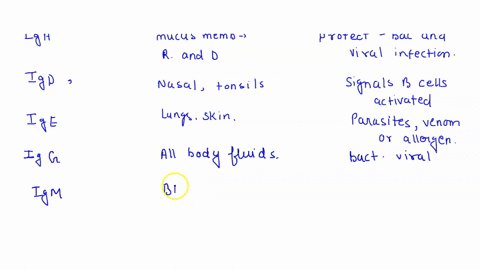 IgA mucus memb → protect - bac and
R. and D viral infection.
IgD, Nasal, tonsils Signals B cells
activated
IgE Lungs. Skin. Parasites, venom
or allergen.
IgG All body fluids. bact. viral
IgM Bl